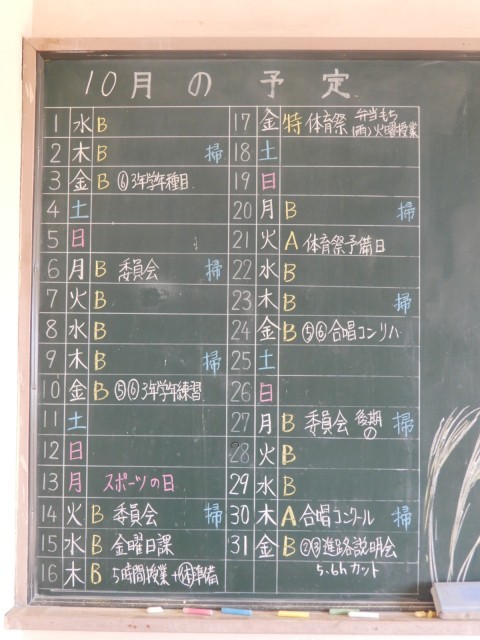 10月の予定
1 水 B
2 木 B 掃
3 金 B ⑥3年学年種目
4 土
5 日
6 月 B 委員会 掃
7 火 B
8 水 B
9 木 B 掃
10 金 B ⑤⑥3年学年練習
11 土
12 日
13 月 スポーツの日
14 火 B 委員会 掃
15 水 B 金曜日課
16 木 B 5時間授業+㊍準備
17 金 特 体育祭 弁当もち
(雨)火曜授業
18 土
19 日
20 月 B 掃
21 火 A 体育祭予備日
22 水 B
23 木 B 掃
24 金 B ⑤⑥合唱コンリハ
25 土
26 日
27 月 B 委員会 後期の 掃
28 火 B
29 水 B
30 木 A 合唱コンクール 掃
31 金 B ②③進路説明会
5.6hカット